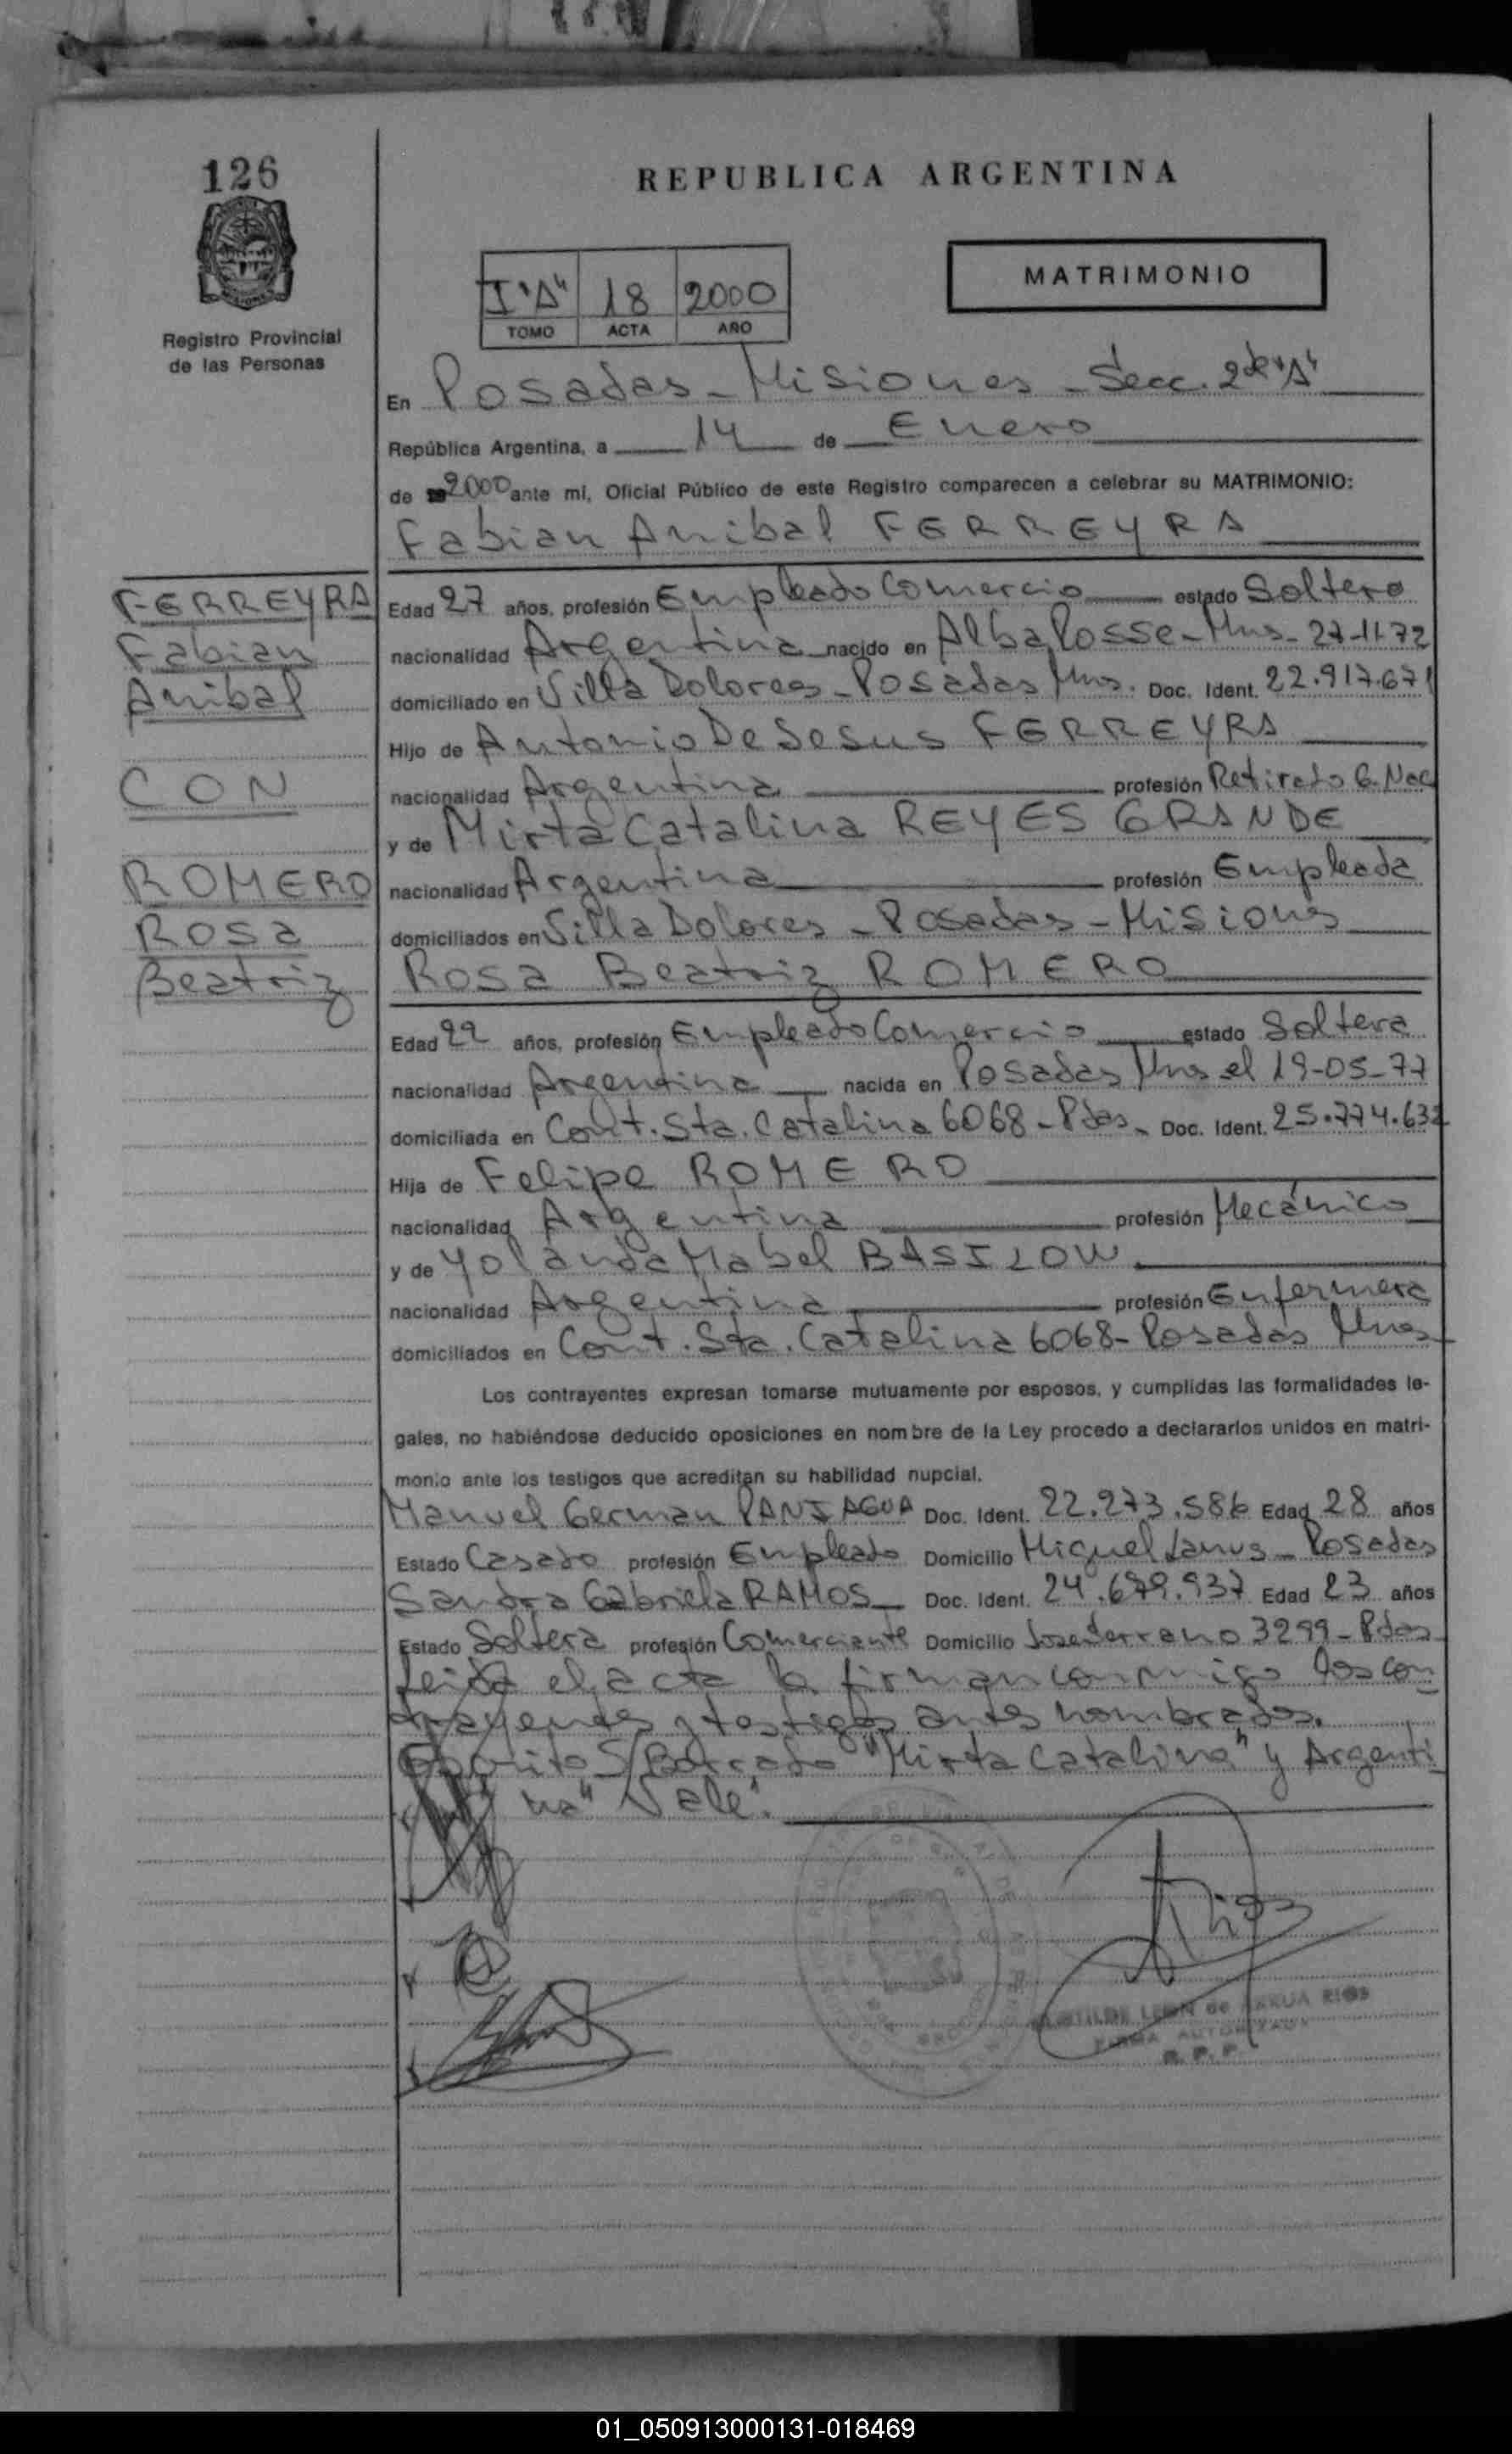 126
REPUBLICA ARGENTINA
Registro Provincial
de las Personas
I "A" 18 2000
TOMO ACTA AÑO
MATRIMONIO
En Posadas - Misiones - Secc. 2da "A"
República Argentina, a 14 de Enero
de 2000 ante mí, Oficial Público de este Registro comparecen a celebrar su MATRIMONIO:
Fabian Anibal FERREYRA
FERREYRA
Fabian
Anibal
CON
ROMERO
Rosa
Beatriz
Edad 27 años, profesión Empleado Comercio estado Soltero
nacionalidad Argentina nacido en Alba Posse - Mnes - 27-11-72
domiciliado en Villa Dolores - Posadas Mnes. Doc. Ident. 22.917.671
Hijo de Antonio De Jesus FERREYRA
nacionalidad Argentina profesión Retirado G. Nac
y de Mirta Catalina REYES GRANDE
nacionalidad Argentina profesión Empleada
domiciliados en Villa Dolores - Posadas - Misiones
Rosa Beatriz ROMERO
Edad 22 años, profesión Empleado Comercio estado Soltera
nacionalidad Argentina nacida en Posadas Mnes el 19-05-77
domiciliada en Cont. Sta. Catalina 6068 - Pdas - Doc. Ident. 25.774.632
Hija de Felipe ROMERO
nacionalidad Argentina profesión Mecánico
y de Yolanda Mabel BASILOW
nacionalidad Argentina profesión Enfermera
domiciliados en Cont. Sta. Catalina 6068 - Posadas Mnes
Los contrayentes expresan tomarse mutuamente por esposos, y cumplidas las formalidades le-
gales, no habiéndose deducido oposiciones en nombre de la Ley procedo a declararlos unidos en matri-
monio ante los testigos que acreditan su habilidad nupcial.
Manuel German PANIAGUA Doc. Ident. 22.273.586 Edad 28 años
Estado Casado profesión Empleado Domicilio Miguel Lanus - Posadas
Sandra Gabriela RAMOS Doc. Ident. 24.679.937 Edad 23 años
Estado Soltera profesión Comerciante Domicilio Jose Serrano 3299 - Pdas
Leida el acta la firman conmigo los con
trayentes y testigos antes nombrados.
Escrito S/Borrado "Mirta Catalina" y Argenti
na" Vale".
LEON de ARRUA RIOS
FIRMA AUTORIZADA
R. P. P.
01_050913000131-018469